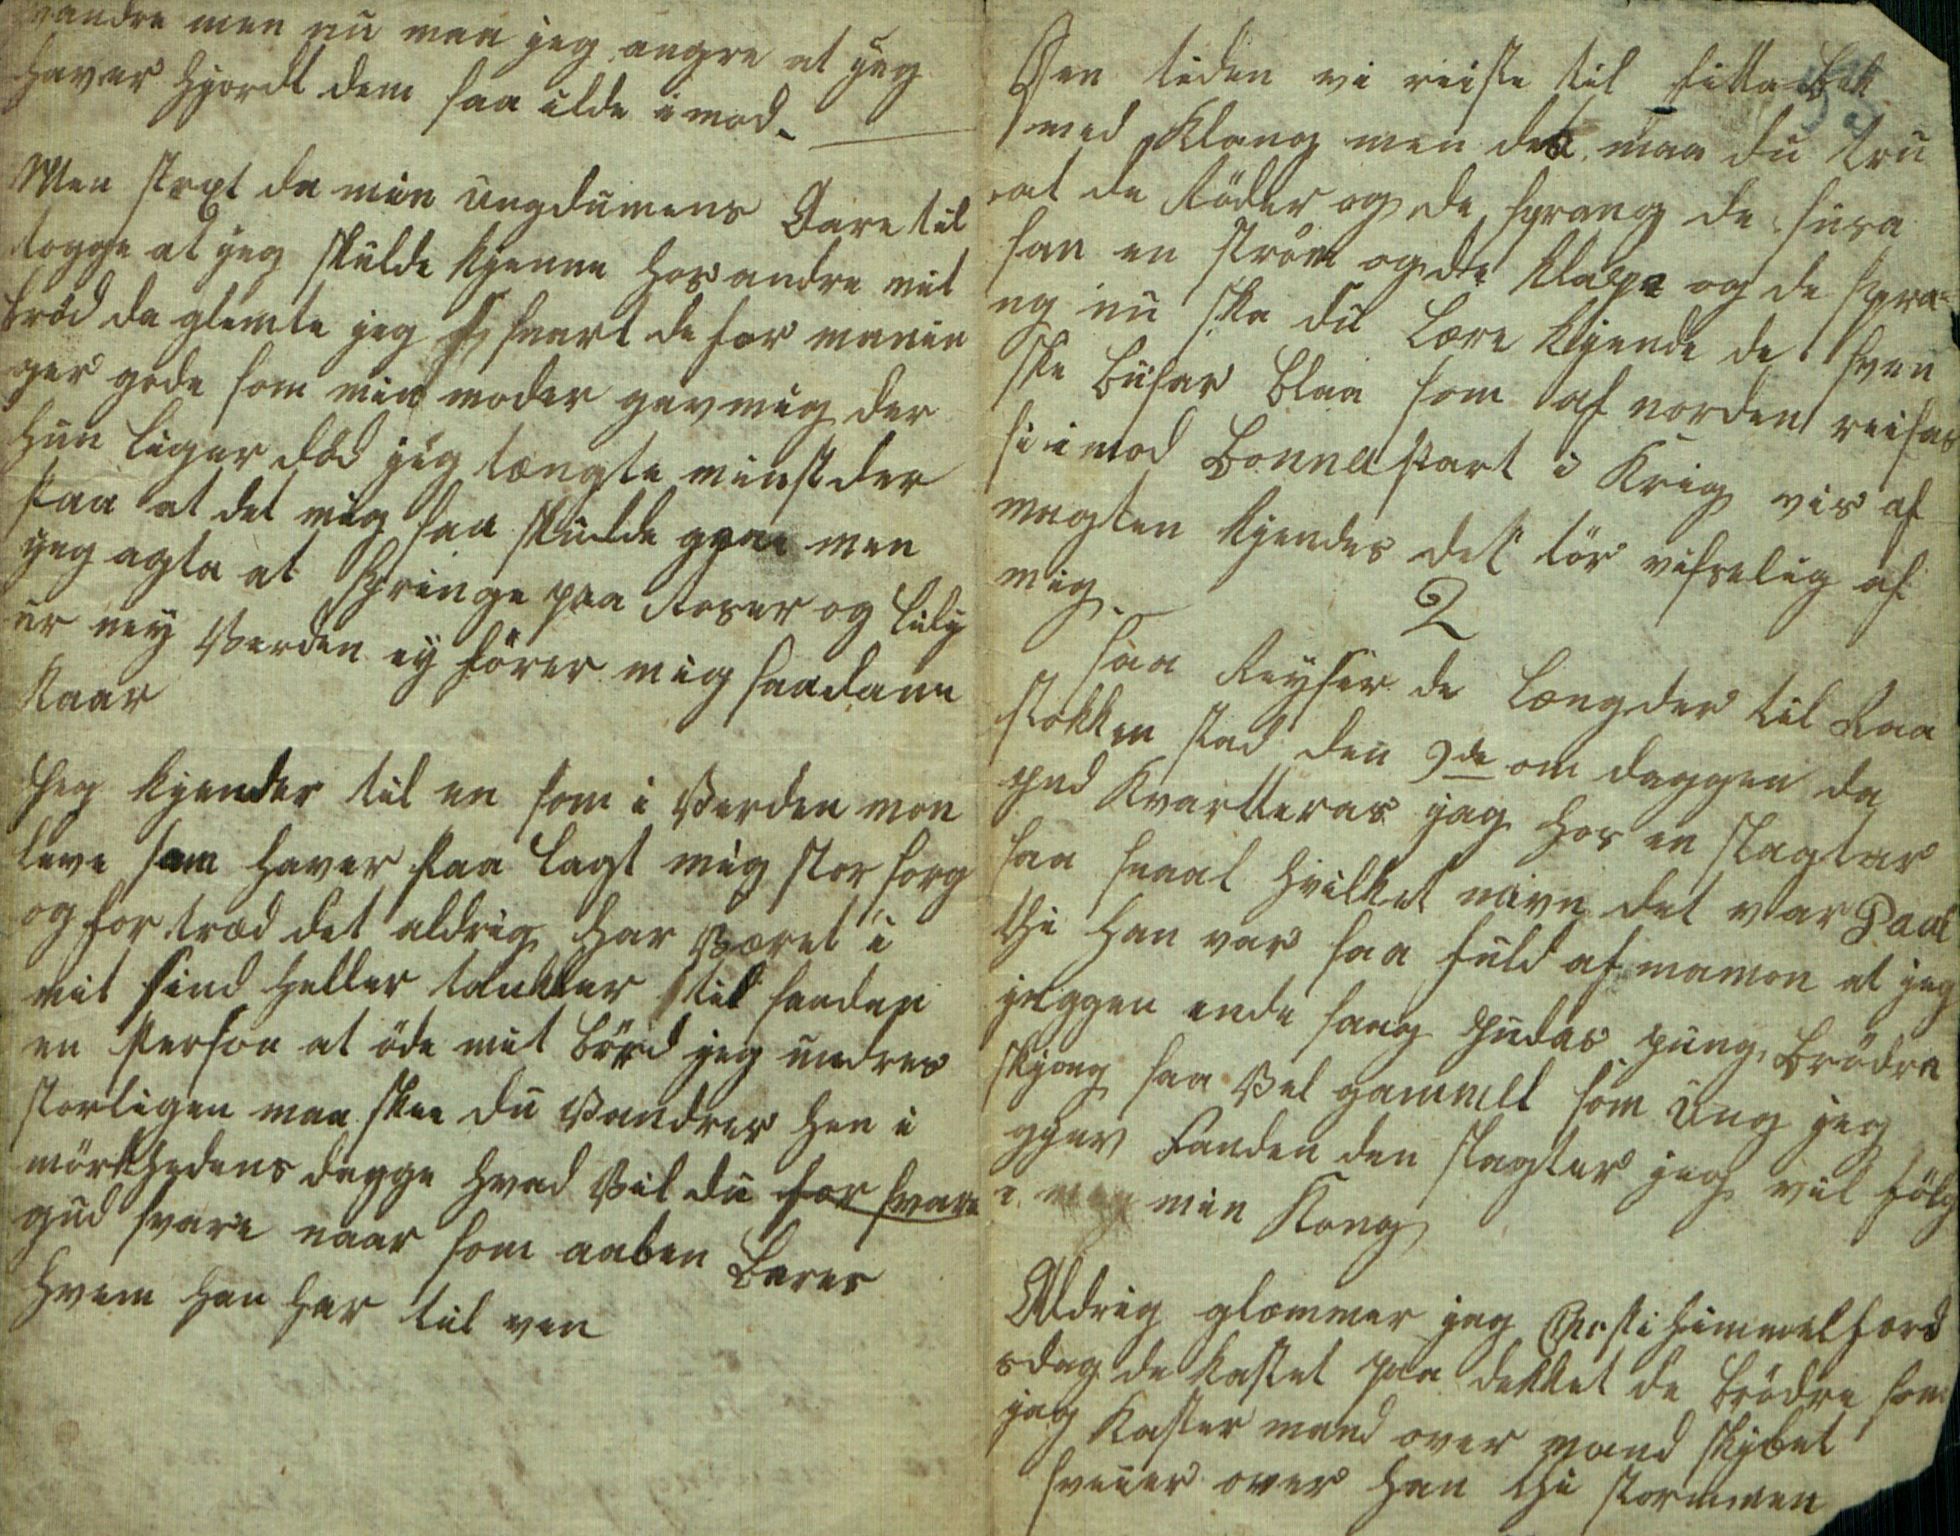 vandre men nu maa jeg angre at jeg
haver hjordt dem saa ilde imod
Men strax da min ungdumens Aare til
togge at jeg skulde kjenne hos andre mit
brød da glemte jeg snart de for manin
ger gode som min moder gav mig der
hun liger död jeg tængte minst der
paa at det mig saa skulde gaae men
jeg agta at springe paa Roser og lilj
er nej Verden ej förer mig saadann
Kaar
Jeg kjender til en som i Verden mon
leve som haver paa lagt mig stor sorg
og for træd det aldrig har Været i
mit sind heller tankker til saaden
en Person at öde mit börd jeg undres
storligen maa skee du Vandrer hen i
mörkhedens dagge hvad Vil du for svare
gud svare naar som aaben bares
hvem han har til ven
Den tiden vi reiste til
med Klang men det maa du tru
at de Röder og de sprang de susa
saa en ström og de Klapa og de spra-
ng nu ska du lære kjende de sven
ske busar blaa som af norden reisas
si imod Bonnapart i Krig vis af
magten kjendes det tör visselig af
mig
2
Saa Reyser de længder til Raa
stokken stad den 9de om daggen da
Kvartteras jag hos en slagtar
saa snaal hvilket navn det var Paal
thi han var saa fuld af mamon at jeg
jaggen ende saag Judas pung, brödra
skjong saa Vel gammel som ung jeg
gjev Fanden den slagter jeg vil fölg
e min Kong
Aldrig glømmer jag Christi himmelford
sdag de kastet paa dekket de brödre som
jag Kaster mand over mand skibet
sveier over han thi stormmen